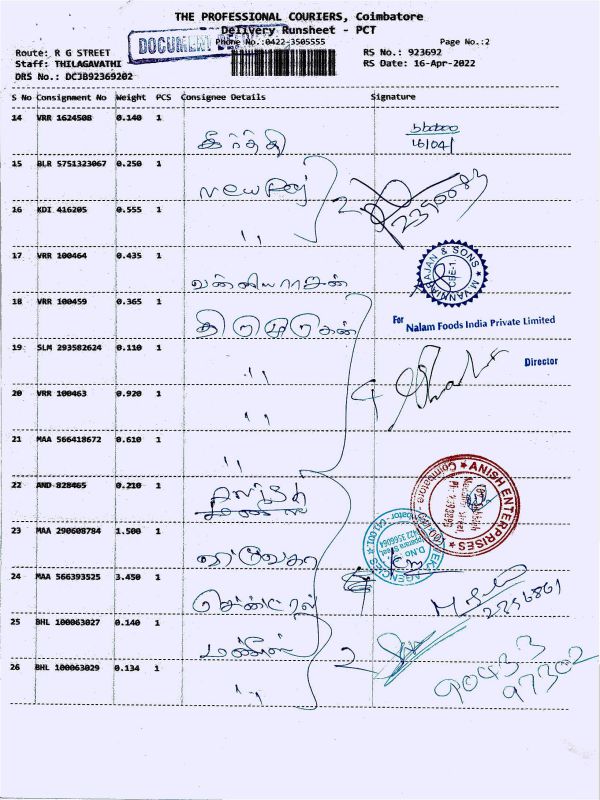 THE PROFESSIONAL COURIERS, Coimbatore
Delivery Runsheet - PCT
DOCUMENT
Phone No.:0422-3505555
Page No.:2
Route: R G STREET
RS No.: 923692
Staff: THILAGAVATHI
RS Date: 16-Apr-2022
DRS No.: DCJB92369202
S No Consignment No Weight PCS Consignee Details Signature
14 VRR 1624508 0.140 1
கீர்த்தி
16/04/
15 BLR 5751323067 0.250 1
New Raj
2
2390083
16 KDI 416205 0.555 1
''
17 VRR 100464 0.435 1
வன்னியராஜன்
M VANNIARAJAN & SONS
CBE-1
18 VRR 100459 0.365 1
திருமுருகன்
For Nalam Foods India Private Limited
19 SLM 293582624 0.110 1
''
Director
20 VRR 100463 0.920 1
''
4
21 MAA 566418672 0.610 1
''
22 AND 828465 0.210 1
ANISH ENTERPRISES
Coimbatore
23 MAA 290608784 1.500 1
AGENCIES
D.No
24 MAA 566393525 3.450 1
சென்ட்ரல்
2256861
25 BHL 100063027 0.140 1
மணீஸ்
2
90433
97302
26 BHL 100063029 0.134 1
''